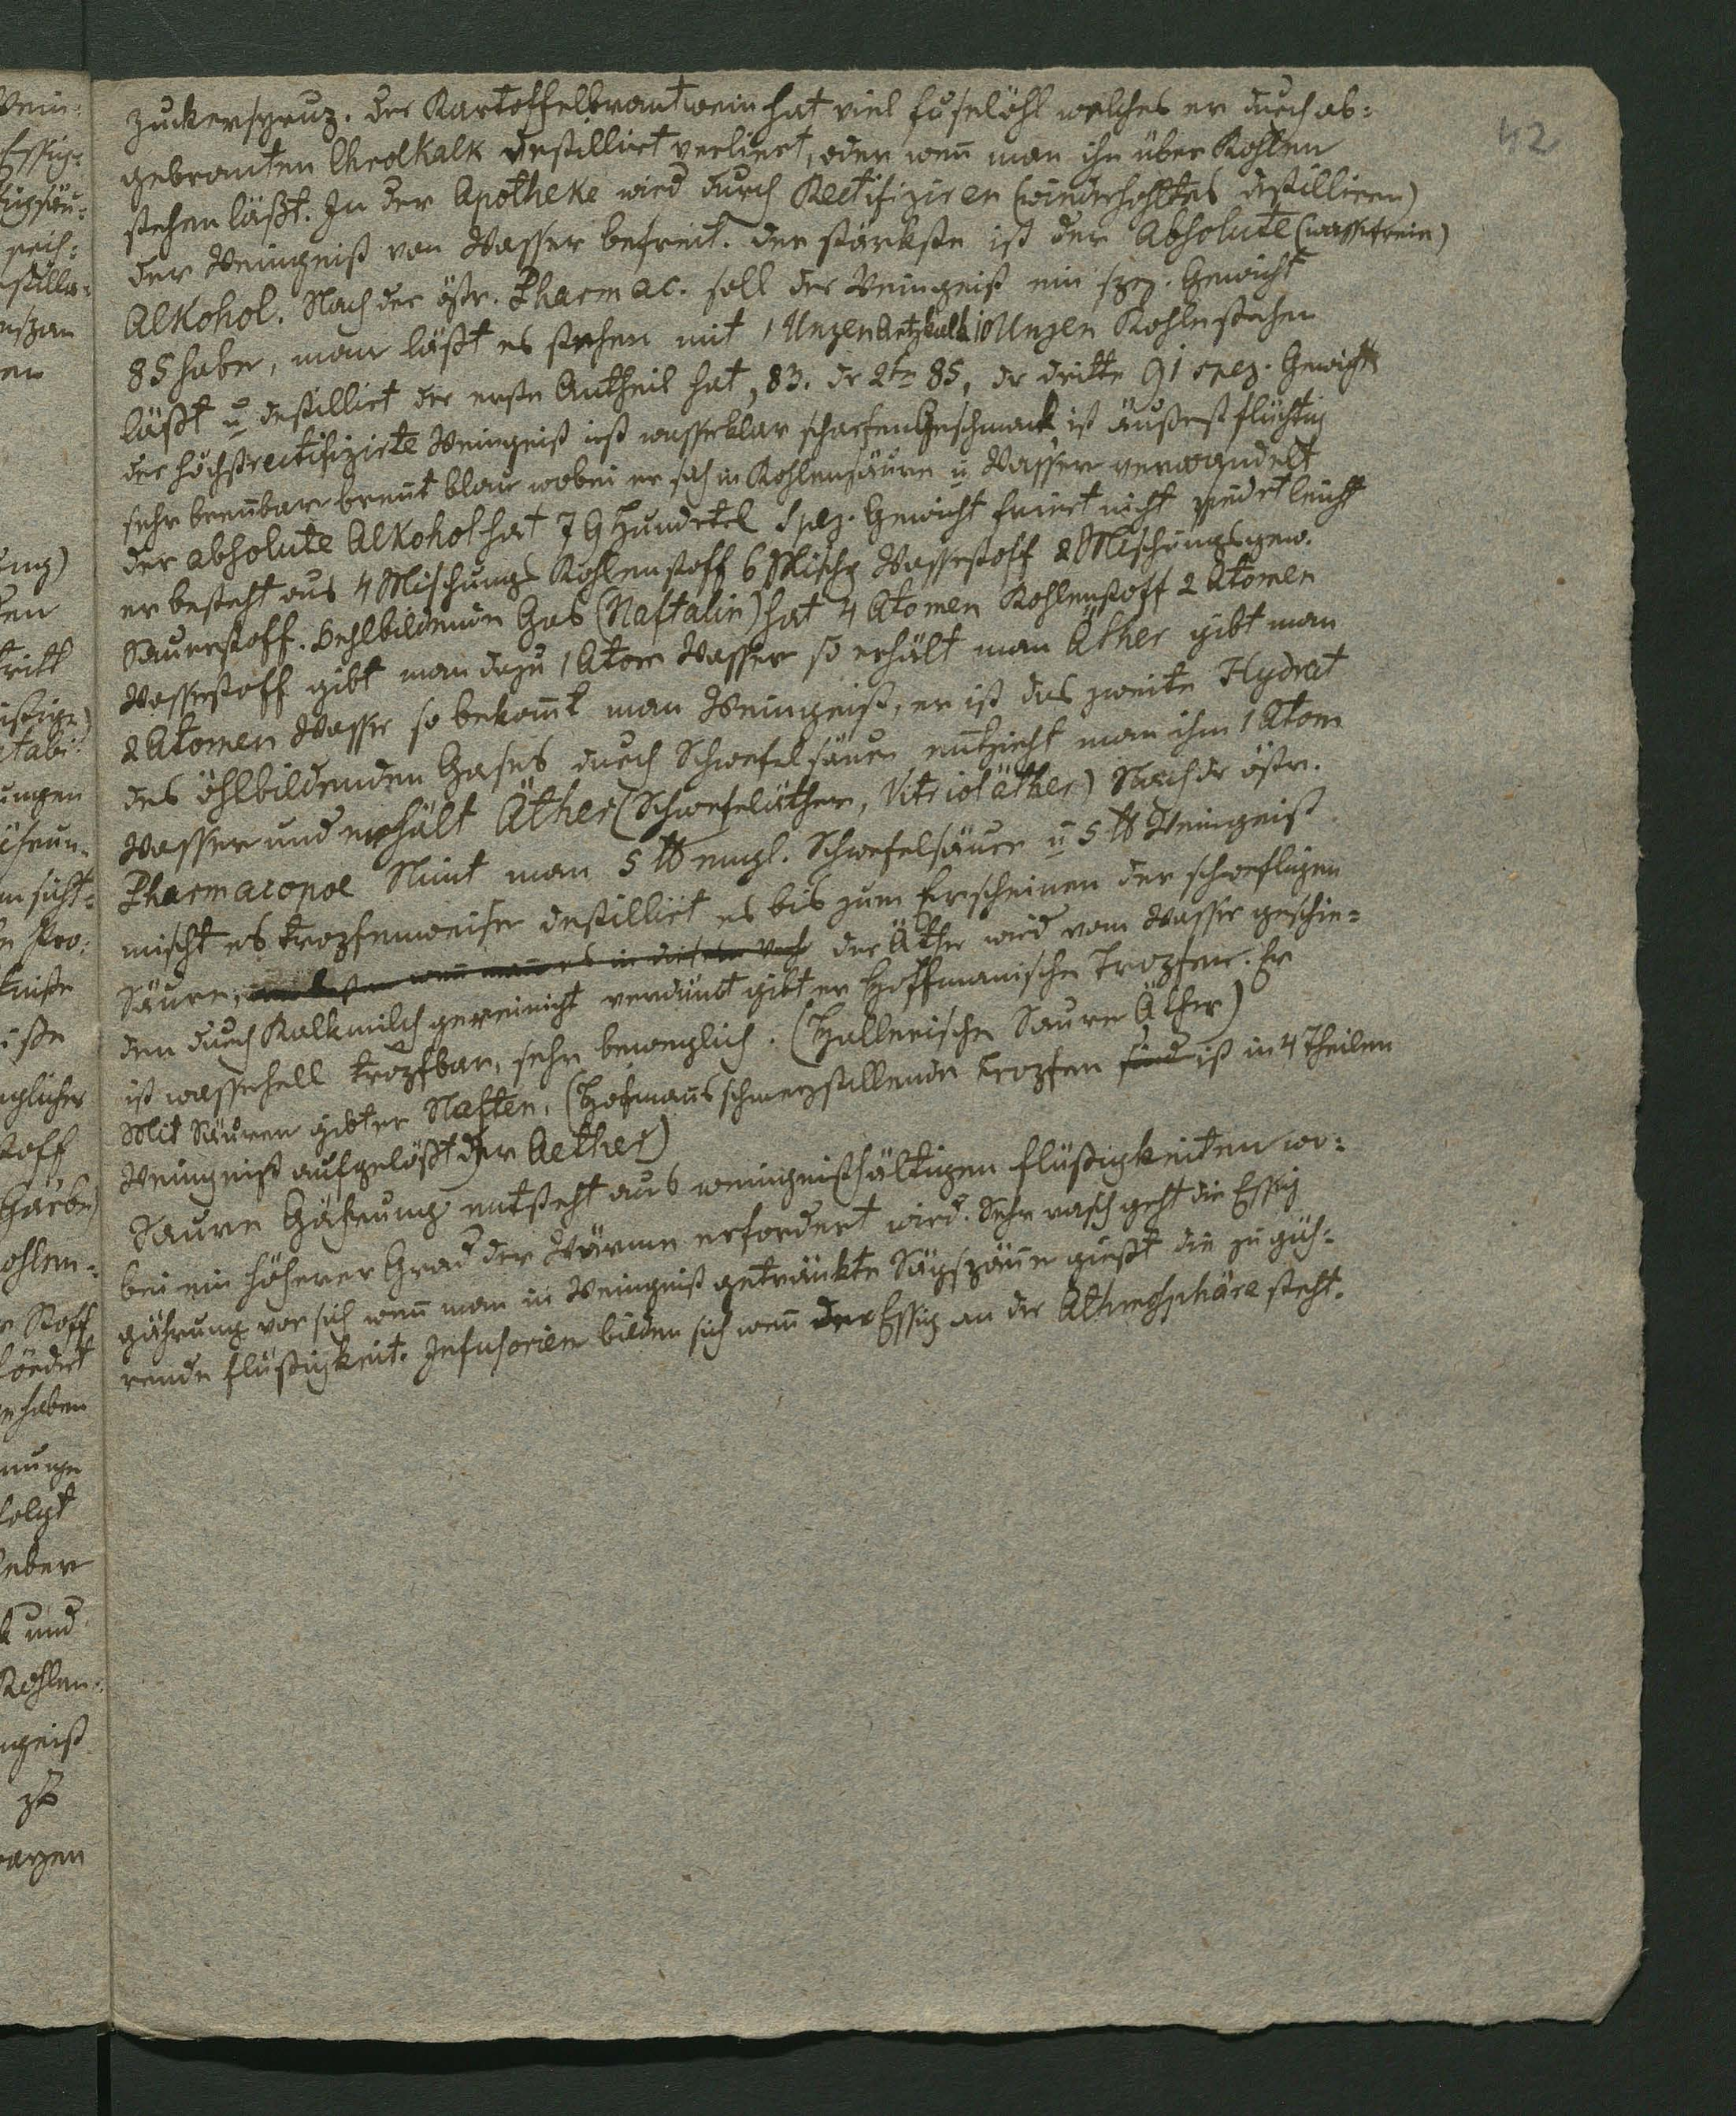 42
Zuckersyrup. der Kartoffelbrantwein hat viel fuselöhl welches er durch ab=
gebranten Chrolkalk destillirt verliert, oder wen̄ man ihn über Kohlen
stehen läßt. In der Apotheke wird durch Rectifiziren (wiederholtes destilliren)
der Weingeist von Wasser befreit. der stärkste ist der Absolute (wasserfreie)
Alkohol. Nach der östr. Pharmac. soll der Weingeist ein spez. Gewicht
85 haben, man läßt es stehen mit 1 Unzen Aetzkalk 10 Unzen Kohle stehen
läßt u destillirt der erste Antheil hat, 83. dr 2te 85, dr dritte 91 spez. Gewicht
der höchstrectifizirte Weingeist ist wasserklar scharfen Geschmack ist äußerst flüchtig
sehr breñbar breñt blau wobei er sich in Kohlensäure u Wasser verwandelt
der absolute Alkohol hat 79 Hundertel Spez. Gewicht friert nicht siedet leicht
er besteht aus 4 Mischungs Kohlenstoff 6 Mischg Wasserstoff 2 Mischungsgew.
Sauerstoff. Oehlbildende Gas (Naftalin) hat 4 Atomen Kohlenstoff 2 Atomen
Wasserstoff gibt man dazu 1 Atom Wasser so erhält man Äther gibt man
2 Atomen Wasser so bekom̄t man Weingeist, er ist das zweite Hydrat
des öhlbildenden Gases durch Schwefelsäure entzieht man ihm 1 Atom
Wasser und erhält Äther (Schwefeläther, Vitrioläther) Nach dr östr.
Pharmacopoe Nim̄t man 5 ℔ engl. Schwefelsäure u 5 ℔ Weingeist
mischt es tropfenweise destillirt es bis zum Erscheinen der schwefligen
Säure, wen̄ man es in der Äther wird vom Wasser geschie=
den durch Kalkmilch gereinicht verdünt gibt er Hoffmanische Tropfen. Er
ist wasserhell tropfbar, sehr beweglich. (Hallerische Saure Äther)
Mit Säuren gibt er Naften, (Hofmans schmerzstillende Tropfen sind ist in 4 Theilen
Weingeist aufgelößt der Aether)
Saure Gährung entsteht aus weingeisthältigen flüßigkeiten wo=
bei ein höherer Grad der Wärme erfordert wird. Sehr rasch geht die Essig
gährung vor sich wen̄ man in Weingeist getränkte Sägspäne gießt die zu gäh=
rende flüßigkeit. Infusorien bilden sich wen̄ der Essig an der Athmosphäre steht.